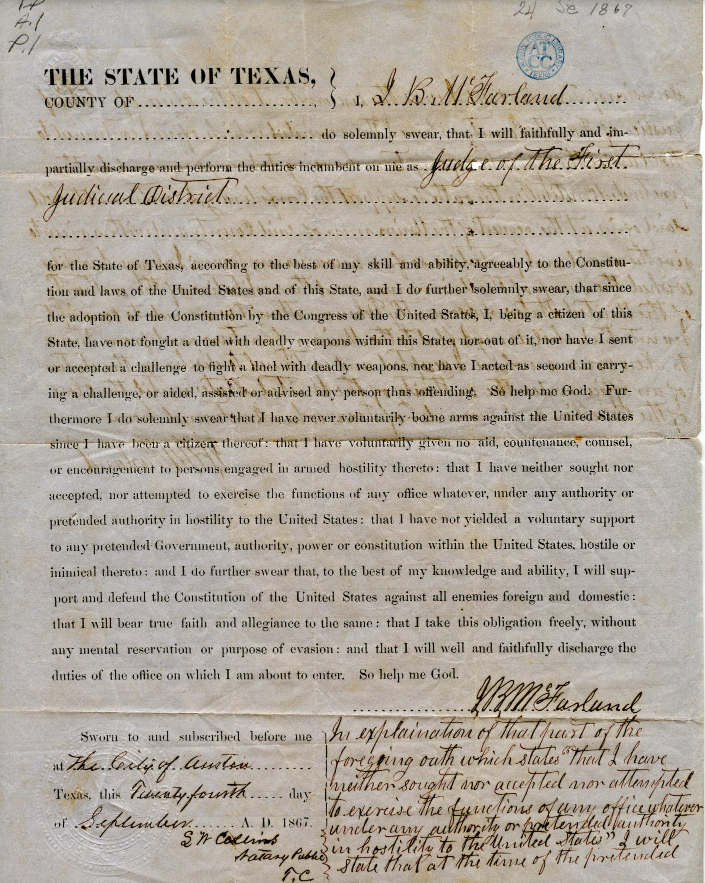 24 Se 1867
A.1
P.1
AUSTIN PUBLIC LIBRARY
AT
CC
TEXAS
THE STATE OF TEXAS,
COUNTY OF
I, J. B. McFarland
do solemnly swear, that I will faithfully and im-
partially discharge and perform the duties incumbent on me as Judge of the First
Judicial District
for the State of Texas, according to the best of my skill and ability, agreeably to the Constitu-
tion and laws of the United States and of this State, and I do further solemnly swear, that since
the adoption of the Constitution by the Congress of the United States, I, being a citizen of this
State, have not fought a duel with deadly weapons within this State, nor out of it, nor have I sent
or accepted a challenge to fight a duel with deadly weapons, nor have I acted as second in carry-
ing a challenge, or aided, assisted or advised any person thus offending. So help me God. Fur-
thermore I do solemnly swear that I have never voluntarily borne arms against the United States
since I have been a citizen thereof: that I have voluntarily given no aid, countenance, counsel,
or encouragement to persons engaged in armed hostility thereto: that I have neither sought nor
accepted, nor attempted to exercise the functions of any office whatever, under any authority or
pretended authority in hostility to the United States: that I have not yielded a voluntary support
to any pretended Government, authority, power or constitution within the United States, hostile or
inimical thereto: and I do further swear that, to the best of my knowledge and ability, I will sup-
port and defend the Constitution of the United States against all enemies foreign and domestic:
that I will bear true faith and allegiance to the same: that I take this obligation freely, without
any mental reservation or purpose of evasion: and that I will well and faithfully discharge the
duties of the office on which I am about to enter. So help me God.
J B McFarland
Sworn to and subscribed before me
at the City of Austin
Texas, this Twenty fourth day
of September A. D. 1867.
S W Collins
Notary Public
T. C
In explaination of that part of the
foregoing oath which states "that I have
neither sought nor accepted nor attempted
to exercise the functions of any office whatever
under any authority or pretended authority
in hostility to the United States" I will
state that at the time of the pretended